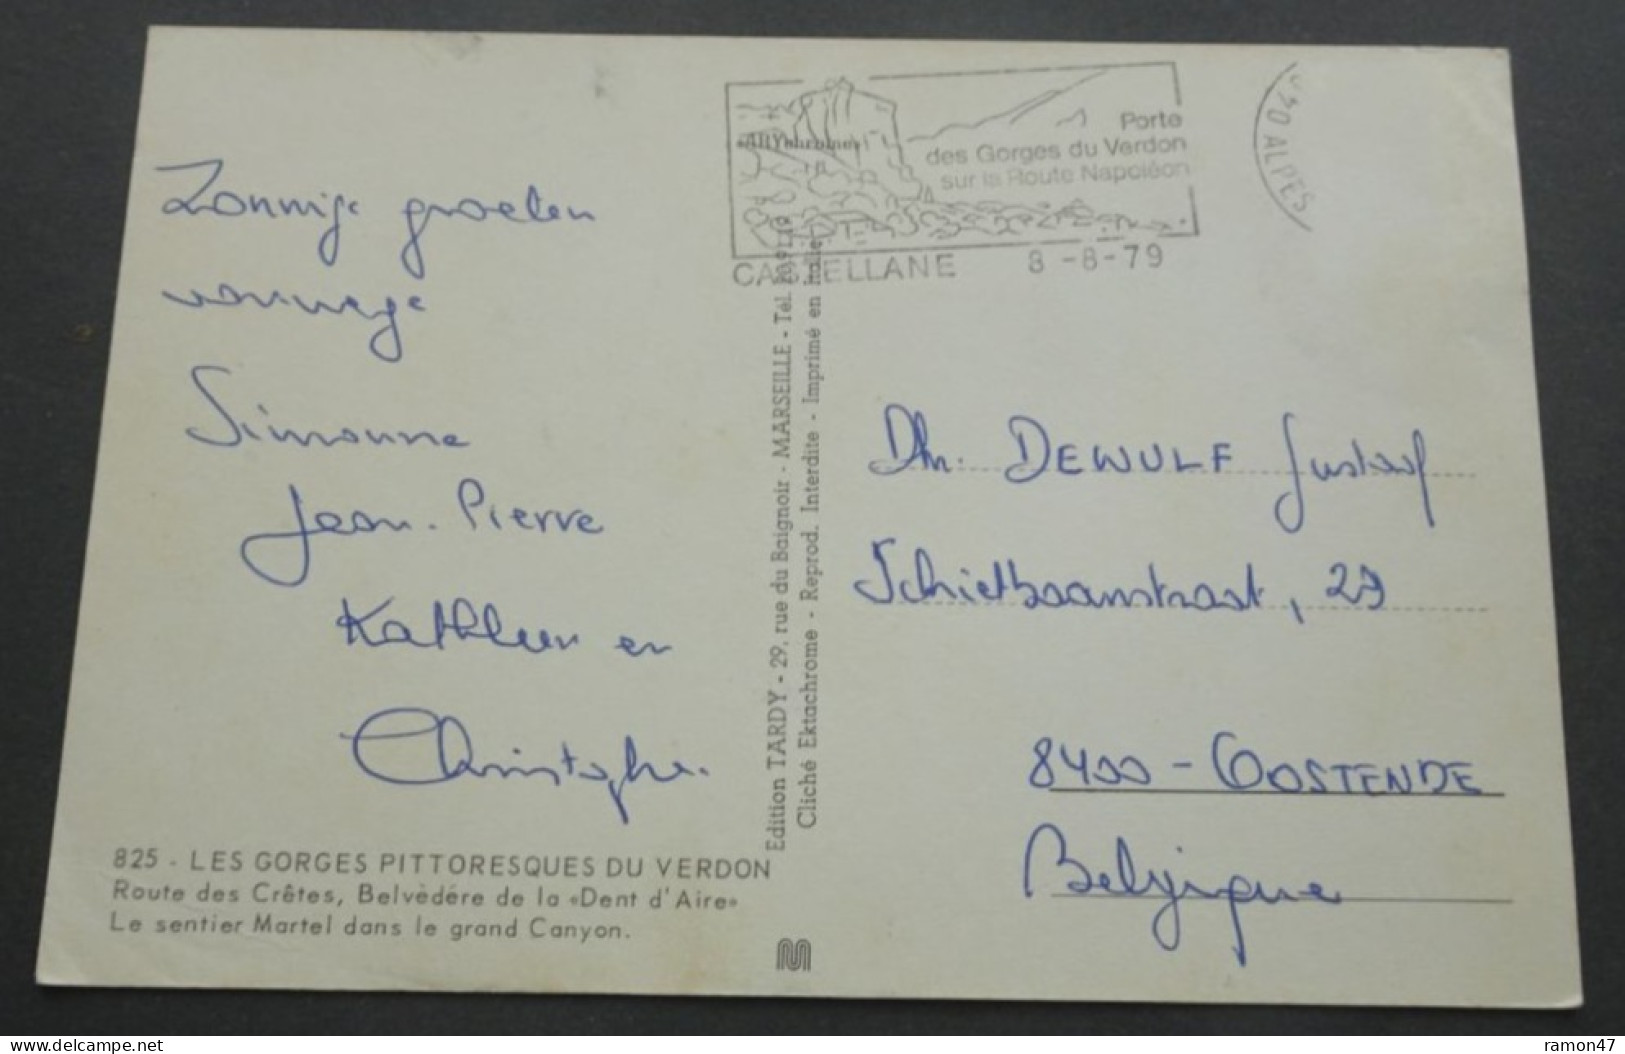 Zonnige groeten
vanwege
Simonne
Jean-Pierre
Kathleen en
Christophe.
825 - LES GORGES PITTORESQUES DU VERDON
Route des Crêtes, Belvèdére de la «Dent d'Aire»
Le sentier Martel dans le grand Canyon.
Edition TARDY - 29, rue du Baignoir - MARSEILLE - Tél.
Cliché Ektachrome - Reprod. Interdite - Imprimé en Italie
Porte
des Gorges du Verdon
sur la Route Napoléon
CASTELLANE 8-8-79
04 ALPES
Dhr. DEWULF Gustaaf
Schietbaanstraat, 29
8400 - OOSTENDE
Belgique
www.delcampe.net
ramon47